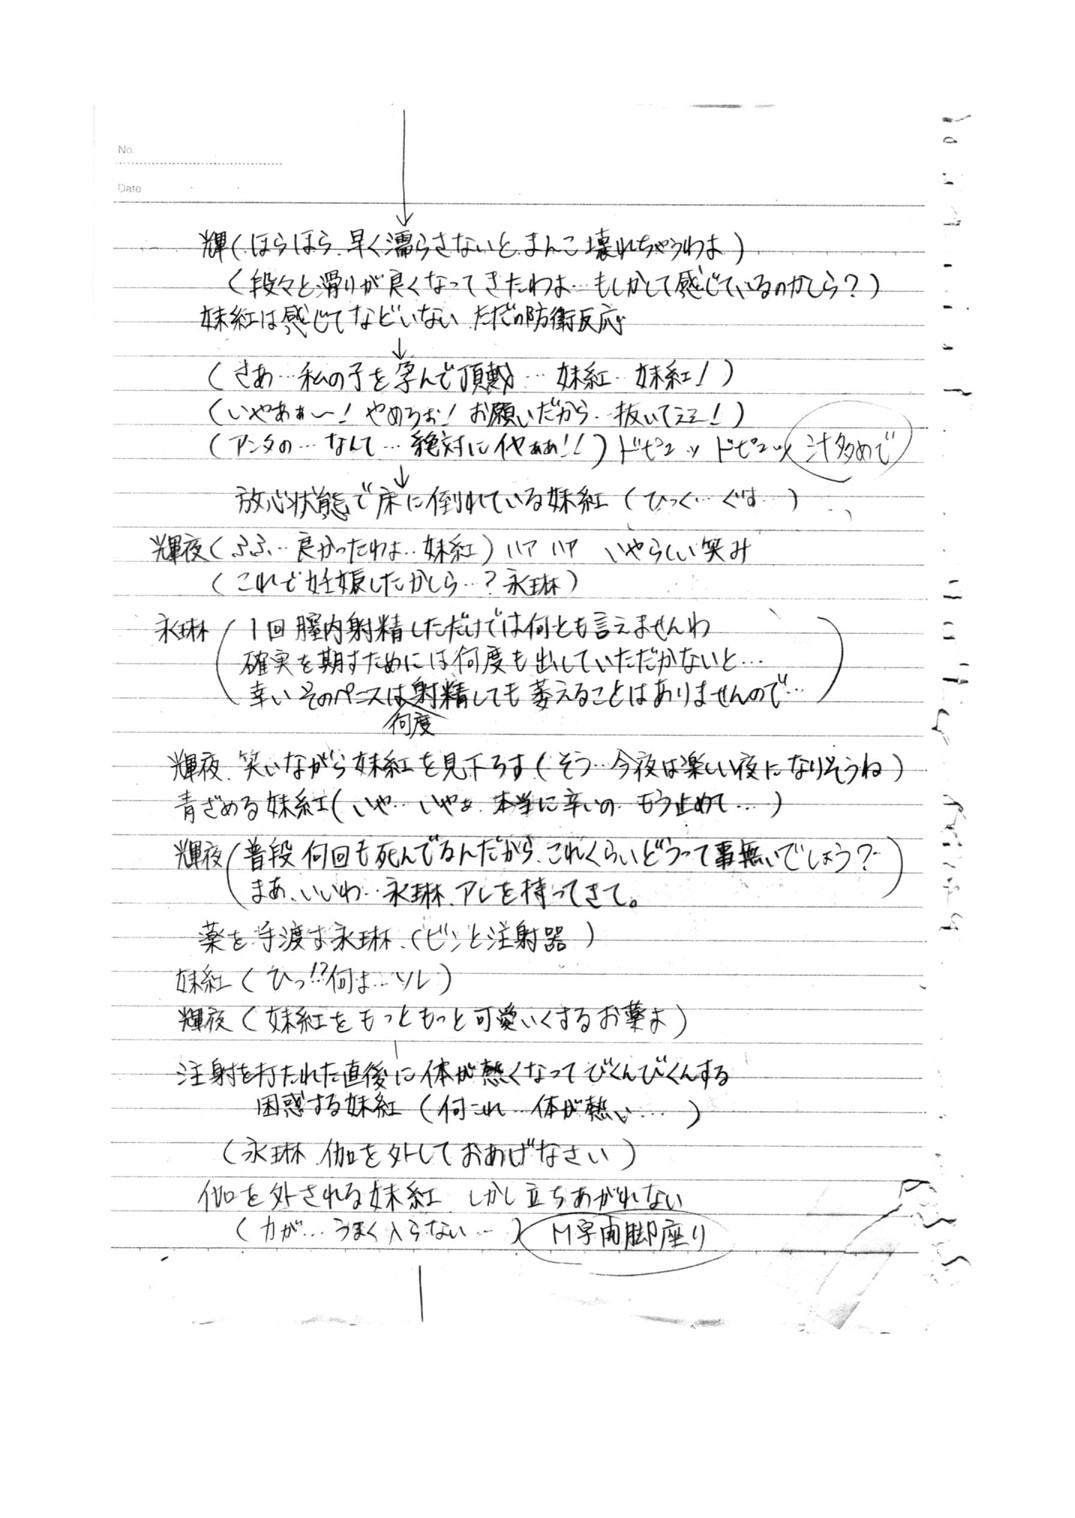 No.
Date
輝(ほらほら、早く濡らさないと、まんこ壊れちゃうわよ)
(段々と滑りが良くなってきたわよ…もしかして感じているのかしら?)
妹紅は感じてなどいない ただの防衛反応
(さあ…私の子を孕んで頂戴…妹紅…妹紅!)
(いやあぁ〜!やめろぉ!お願いだから…抜いてェェ!)
(アンタの…なんて…絶対にイヤぁぁ!!)ドピュッドピュッ 汁多めで
放心状態で床に倒れている妹紅(ひっく…ぐす…)
輝夜(ふふ…良かったわよ…妹紅)ハァ ハァ いやらしい笑み
(これで妊娠したかしら…?永琳)
永琳(1回膣内射精しただけでは何とも言えませんわ
確実を期すためには何度も出していただかないと…
幸いそのペニスは何度射精しても萎えることはありませんので…)
輝夜、笑いながら妹紅を見下ろす(そう…今夜は楽しい夜になりそうね)
青ざめる妹紅(いや…いやよ 本当に辛いの もう止めて…)
輝夜(普段何回も死んでるんだから、これくらいどうって事無いでしょう?
まあ、いいわ…永琳、アレを持ってきて。)
薬を手渡す永琳(ビンと注射器)
妹紅(ひっ!?何よ…ソレ)
輝夜(妹紅をもっともっと可愛いくするお薬よ)
注射を打たれた直後に体が熱くなってびくんびくんする
困惑する妹紅(何これ…体が熱い…)
(永琳、枷を外しておあげなさい)
枷を外される妹紅 しかし立ちあがれない
(力が…うまく入らない…)M字開脚座り